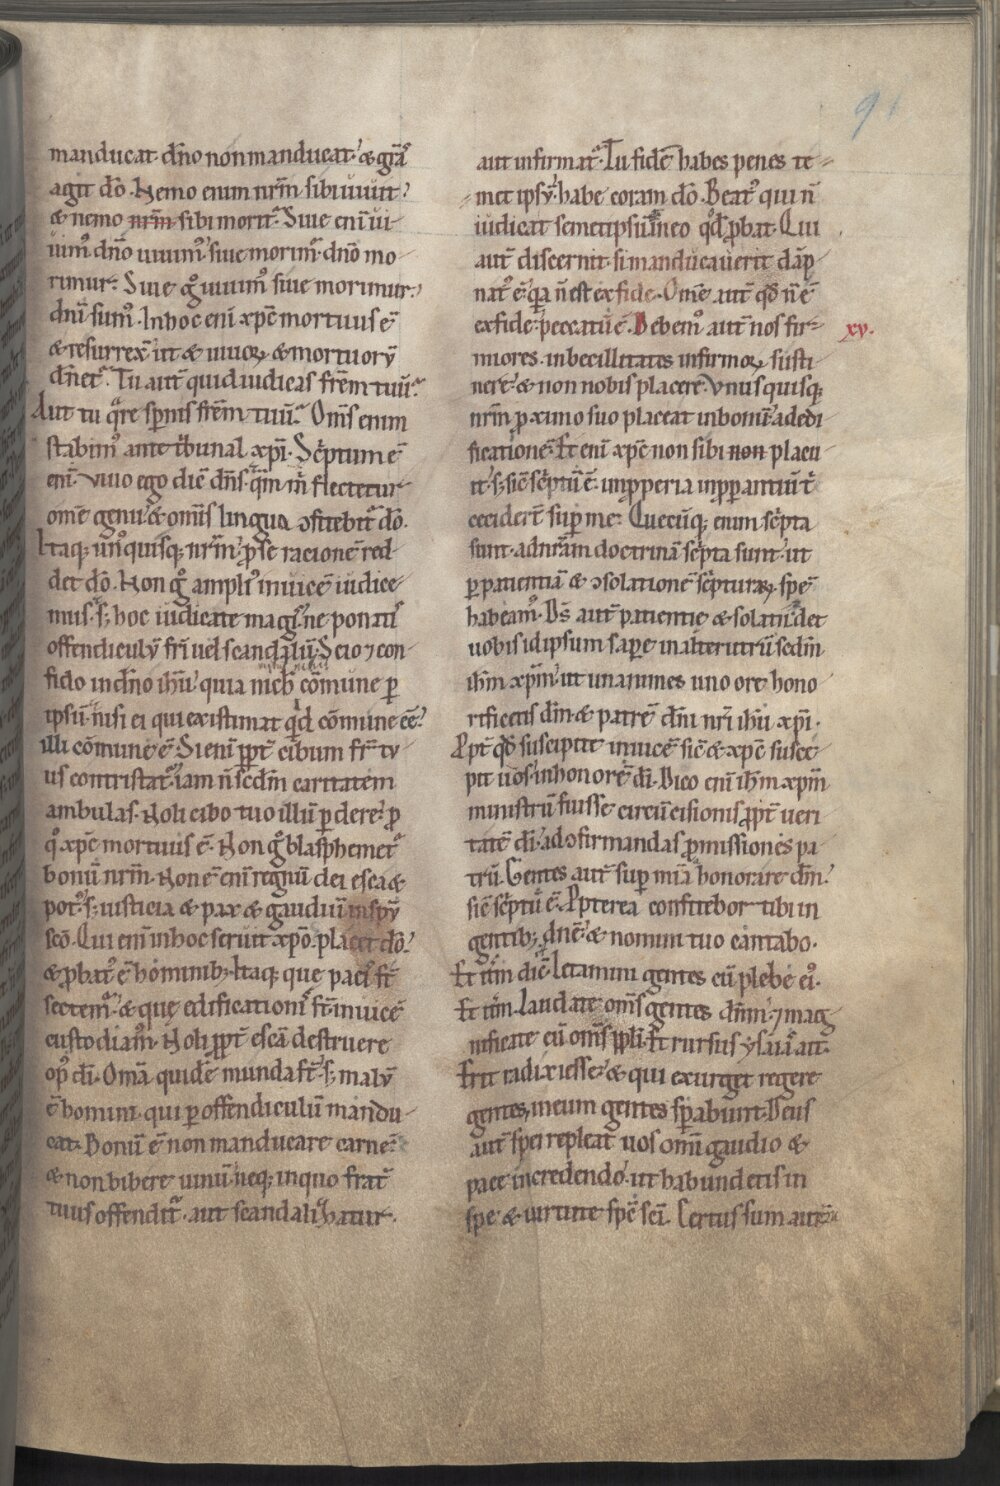 manducat dño non manducat· & gr̃aˢ
agit dõ. Nemo enim nr̃m sibi uiuit:
& nemo nr̃m sibi moritᷣ. Siue eni̅ ui
uim᷒ dño uiuim᷒ siue morimᷣ· dño mo
rimur· Siue g̊ uiuim᷒ siue morimur·
dñi sum᷒. In hoc eni̅ xp̃c mortuus ẽ
& resurrex̃ ut & uiuoꝝ & mortuorȳ
dñetᷣ. Tu autẽ quid iudicas fr̃em tuū·
Aut tu q̃re sp̃nis fr̃em tuū· Om̃s enim
stabim᷒ ante tribunal xp̃i· Sc̃ptum ẽ
eni̅· uiuo ego dic̃ dñs· qm̃ m̃ flectetur
om̃e genu & om̃is lingua ꝯfitebitᷣ dõ.
Itaq; un᷒quisq; nr̃m ꝓ se racionẽ red
det dõ. Non g̊ ampli᷒ inuicẽ iudice
mus· s; hoc iudicate magis ne ponatis
offendiculȳ fr̃i uel scandalū· Scio ⁊ con
fido in dño ih̃u quia nich̃ cōmune p̱
ipsū· nisi ei qui existimat qd̃ cōmune ẽẽ·
illi cōmune ẽ· Si eni̅ ꝓpt̃ cibum fr̃ tu
us contristatᷣ iam ñ scd̃m caritatem
ambulas. Noli cibo tuo illū p̱dere· ꝓ
q̊ xp̃c mortuus ẽ. Non g̊ blasphemetᷣ
bonū nr̃m. Non ẽ eni̅ regnū dei esca &
pot᷒· s; iusticia & pax & gaudiū in sp̃u
scõ. Qui eni̅ in hoc seruit xp̃o· placet dõ·
& ꝓbat᷒ ẽ hominib;. Itaq; que pacis s̃t
sectemᷣ & quę edificationis s̃t inuicẽ
custodiam᷒. Noli ꝓpt̃ escã destruere
op᷒ dĩ. Om̃a quidẽ munda s̃t· s; malȳ
ẽ homini· qui p̱ offendiculū mandu
cat. Bonū ẽ non manducare carnẽ·
& non bibere uinū· neq; in quo frat̃
tuus offenditᷣ· aut scandalizatur·
aut infirmatᷣ. Tu fidẽ habes penes te
met ipsȳ· habe coram dõ. Beat᷒ qui ñ
iudicat semetipsū in eo qd̃ ꝓbat. Qui
autẽ discernit· si manducauerit dãp
nat᷒ ẽ· q̃a ñ est ex fide. Om̃e autẽ qd̃ ñ ẽ
ex fide· peccatū ẽ. Debem᷒ autẽ nos fir
xv.
miores· inbecillitates infirmoꝝ susti
nere· & non nobis placere. Vnusquisq;
nr̃m ꝓximo suo placeat in bonū· ad edi
ficationẽ. Et eni̅ xp̃c non sibi non placu
it· s; sic̃ sc̃ptū ẽ. inꝓperia inꝓp̱antiū t̃
cecider̃t sup̱ me. Quecūq; enim sc̃pta
sunt· ad nr̃am doctrinã sc̃pta sunt· ut
p̱ patientiã & ꝯsolationẽ sc̃pturaꝝ spẽ
habeam᷒. Ds̃ autẽ patientie & solatii det
uobis id ipsum sap̱e in alterutrū scd̃m
ih̃m xp̃m· ut unanimes uno ore hono
rificetis dm̃ & patrẽ dñi nr̃i ih̃u xp̃i.
Ppt̃ qd̃ suscipite inuicẽ sic̃ & xp̃c susce
pit uos in honorẽ dĩ. Dico eni̅ ih̃m xp̃m
ministrū fuisse circūcisionis ꝓpt̃ ueri
tatẽ dĩ· ad ꝯfirmandas ꝓmissiones pa
trū. Gentes autẽ sup̱ mĩa honorare dm̃·
sic̃ sc̃ptū ẽ. Ppterea confitebor tibi in
gentib; dñe & nomini tuo cantabo.
Et itm̃ dic̃. Letamini gentes cū plebe ei᷒.
Et itm̃. Laudate om̃s gentes dm̃m· ⁊ mag
nificate eū om̃s ppl̃i. Et rursus ysaias ait·
Erit radix iesse· & qui exurget regere
gentes, in eum gentes sp̱abunt. Deus
autẽ spei repleat uos om̃i gaudio &
pace in credendo· ut habundetis in
spe & uirtute sp̃c sc̃i. Certus sum autẽ